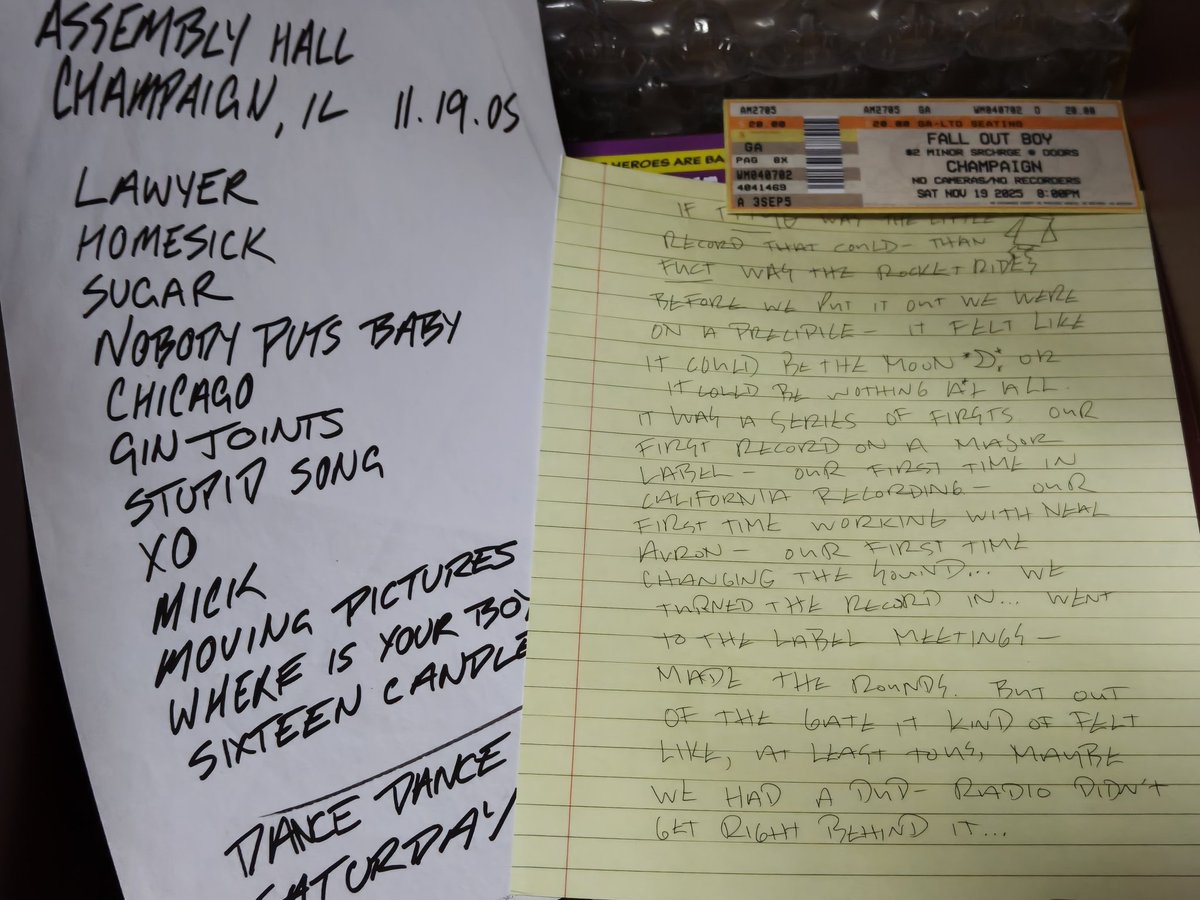 ASSEMBLY HALL
CHAMPAIGN, IL 11.19.05
LAWYER
HOMESICK
SUGAR
NOBODY PUTS BABY
CHICAGO
GIN JOINTS
STUPID SONG
XO
MICK
MOVING PICTURES
WHERE IS YOUR BOY
SIXTEEN CANDLE
DANCE DANCE
SATURDAY
HEROES ARE BA
AM2705 AM2705 GA WM040702 D 20.00
20.00 20.00 GA-LTD SEATING
GA FALL OUT BOY
PAG 8X $2 MINOR SRCHRGE @ DOORS
WM040702 CHAMPAIGN
4041469 NO CAMERAS/NO RECORDERS
A 3SEP5 SAT NOV 19 2025 8:00PM
IF WAS THE LITTLE
RECORD THAT COULD- THAN
FUCT WAS THE ROCKET RIDES
BEFORE WE PUT IT OUT WE WERE
ON A PRECIPILE- IT FELT LIKE
IT COULD BE THE MOON OR
IT COULD BE NOTHING AT ALL.
IT WAS A SERIES OF FIRSTS OUR
FIRST RECORD ON A MAJOR
LABEL- OUR FIRST TIME IN
CALIFORNIA RECORDING- OUR
FIRST TIME WORKING WITH NEAL
AVRON- OUR FIRST TIME
CHANGING THE SOUND... WE
TURNED THE RECORD IN... WENT
TO THE LABEL MEETINGS-
MADE THE ROUNDS. BUT OUT
OF THE GATE IT KIND OF FELT
LIKE, AT LEAST TO US, MAYBE
WE HAD A DUD- RADIO DIDN'T
GET RIGHT BEHIND IT...